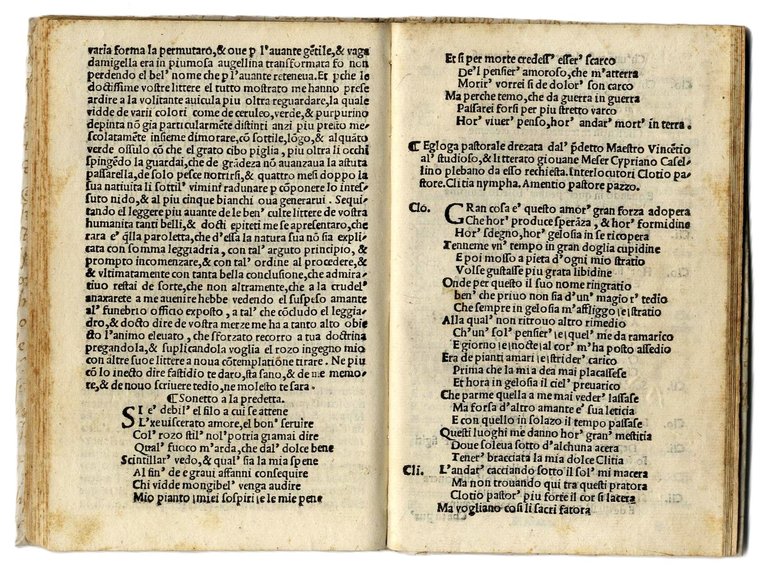 varia forma la permutaro, & oue p l'auante gētile, & vaga
damigella era in piumosa augellina transformata fo non
perdendo el bel' nome che p l'auante reteneua. Et pche le
doctissime vostre littere el tutto mostrato me hanno prese
ardire a la volitante auicula piu oltra reguardare, la quale
vidde de varii colori come de ceruleo, verde, & purpurino
depinta nō gia particularmēte distinti anzi piu presto me/
scolatamēte insieme dimorare, cō sottile, lōgo, & al quāto
verde ossulo cō che el grato cibo piglia, piu oltra li occhi
spingēdo la guardai, che de grādeza nō auanzaua la astuta
passarella, de solo pesce notrirsi, & quattro mesi doppo la
sua natiuita li sottil' vimini radunare p cōponere lo intes/
suto nido, & al piu cinque bianchi oua generarui. Sequi/
tando el leggere piu auante de le ben' culte littere de vostra
humanita tanti belli, & docti epiteti me se apresentaro, che
rara e' q̄lla paroletta, che d'essa la natura sua nō sia expli/
cata con somma leggiadria, con tal' arguto principio, &
prompto incomenzare, & con tal' ordine al procedere, &
& vltimatamente con tanta bella conclusione, che admira/
tiuo restai de sorte, che non altramente, che a la crudel'
anaxarete a me auenire hebbe vedendo el suspeso amante
al' funebrio officio exposto, a tal' che cōcludo el leggia/
dro, & docto dire de vostra merze me ha a tanto alto obie
cto l'animo eleuato, che sforzato recorro a tua doctrina
pregandola, & suplicandola voglia el rozo ingegno mio
con altre suoe littere a noua cōtemplatiōe tirare. Ne piu
cō lo inecto dire fastidio te daro, sta sano, & de me memo/
re, & de nouo scriuere tedio, ne molesto te sara.
¶ Sonetto a la predetta.
SI e' debil' el filo a cui se attene
L'exuiscerato amore, el bon' seruire
Col' rozo stil' nol' potria gamai dire
Qual' fuoco m'arda, che dal' dolce bene
Scintillar' vedo, & qual' sia la mia spene
Al fin' de e graui affanni consequire
Chi vidde mongibel' venga audire
Mio pianto i miei sospiri e le mie pene
Et si per morte credess' esser' scarco
De'l pensier' amoroso, che m'atterra
Morir' vorrei si de dolor' son carco
Ma perche temo, che da guerra in guerra
Passarei forsi per piu stretto varco
Hor' viuer' penso, hor' andar' mort' in terra.
¶ Egloga pastorale drezata dal' pdetto Maestro Vincētio
al' studioso, & litterato giouane Meser Cypriano Casel/
lino plebano da esso rechiesta. Interlocutori Clotio pa/
store. Clitia nympha. Amentio pastore pazzo.
Clo. GRan cosa e' questo amor' gran forza adopera
Che hor' produce sperāza, & hor' formidine
Hor' sdegno, hor' gelosia in se ricopera
Tenneme vn' tempo in gran doglia cupidine
E poi mosso a pieta d'ogni mio stratio
Volse gustasse piu grata libidine
Onde per questo il suo nome ringratio
ben' che priuo non sia d'un' magior' tedio
Che sempre in gelosia m'affliggo e stratio
Alla qual' non ritrouo altro rimedio
Ch'un' sol' pensier' e quel' me da ramarico
E giorno e nocte al cor' m'ha posto assedio
Era de pianti amari e strider' carico
Prima che la mia dea mai placassese
Et hora in gelosia il ciel' preuarico
Che parme quella a me mai veder' lassase
Ma forsa d'altro amante e' sua leticia
E quello con in solazo il tempo passase
Questi luoghi me danno hor' gran' mestitia
Doue soleua sotto d'alchuna acera
Tener' bracciata la mia dolce Clitia
Cli. L'andar' cacciando sotto il sol' mi macera
Ma non trouando qui tra questi pratora
Clotio pastor' piu forte il cor si lacera
Ma vogliano cosi li sacri fatora